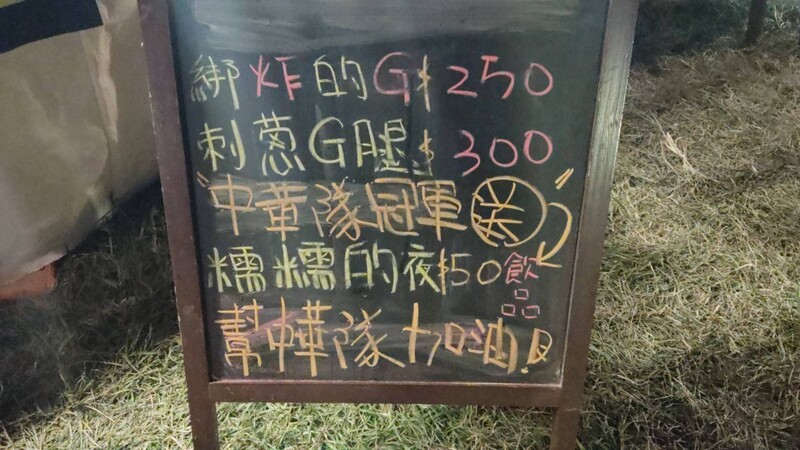 綁炸的G$250
刺蔥G腿$300
"中華隊冠軍送"
糯糯的夜$50飲品
幫中華隊加油!